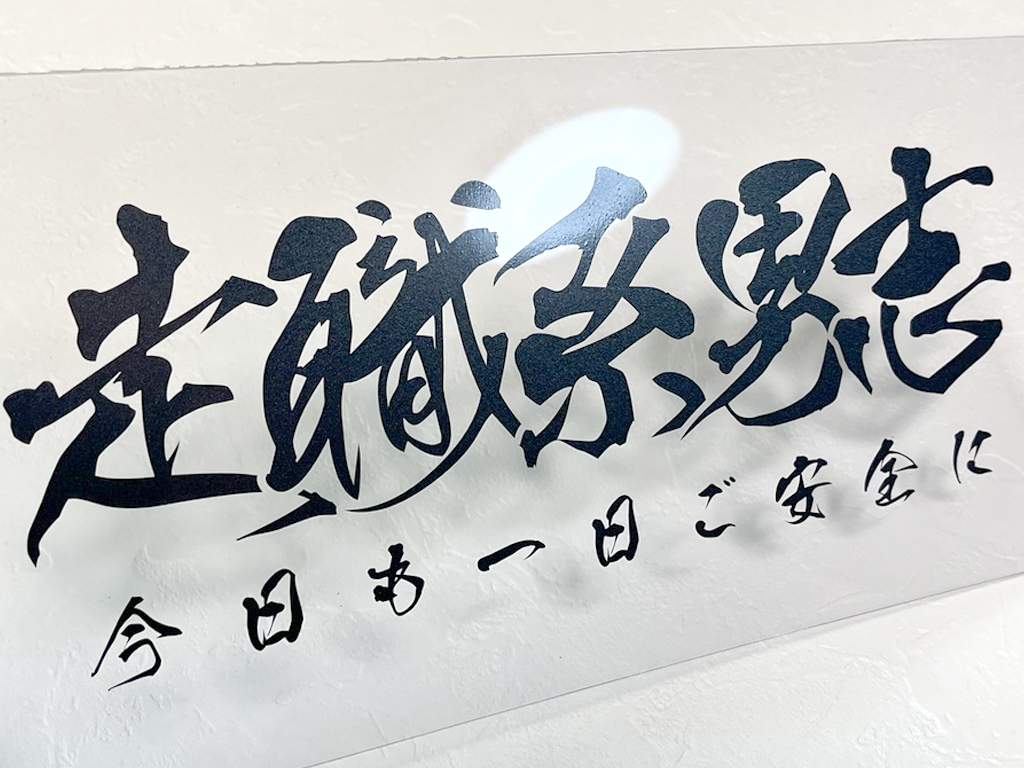 走職系男志
今日も一日ご安全に